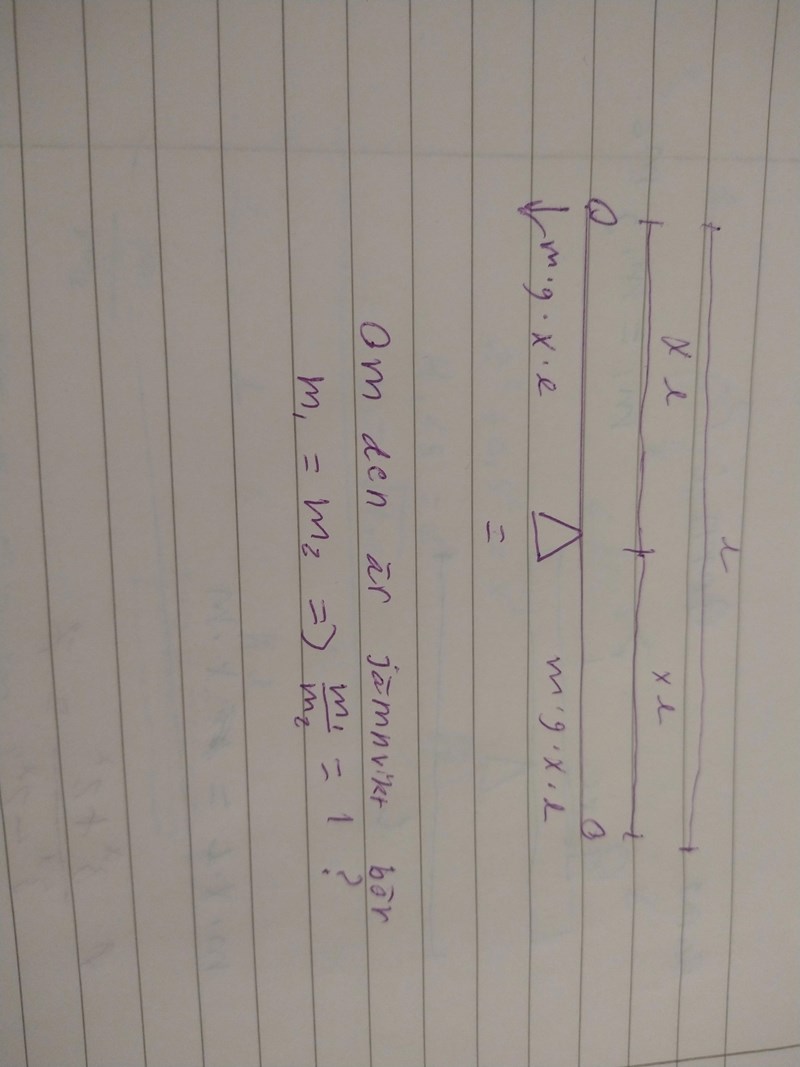 l
xl xl
m·g·x·l m·g·x·l
=
Om den är jämnvikt bör
m₁ = m₂ => m₁/m₂ = 1 ?